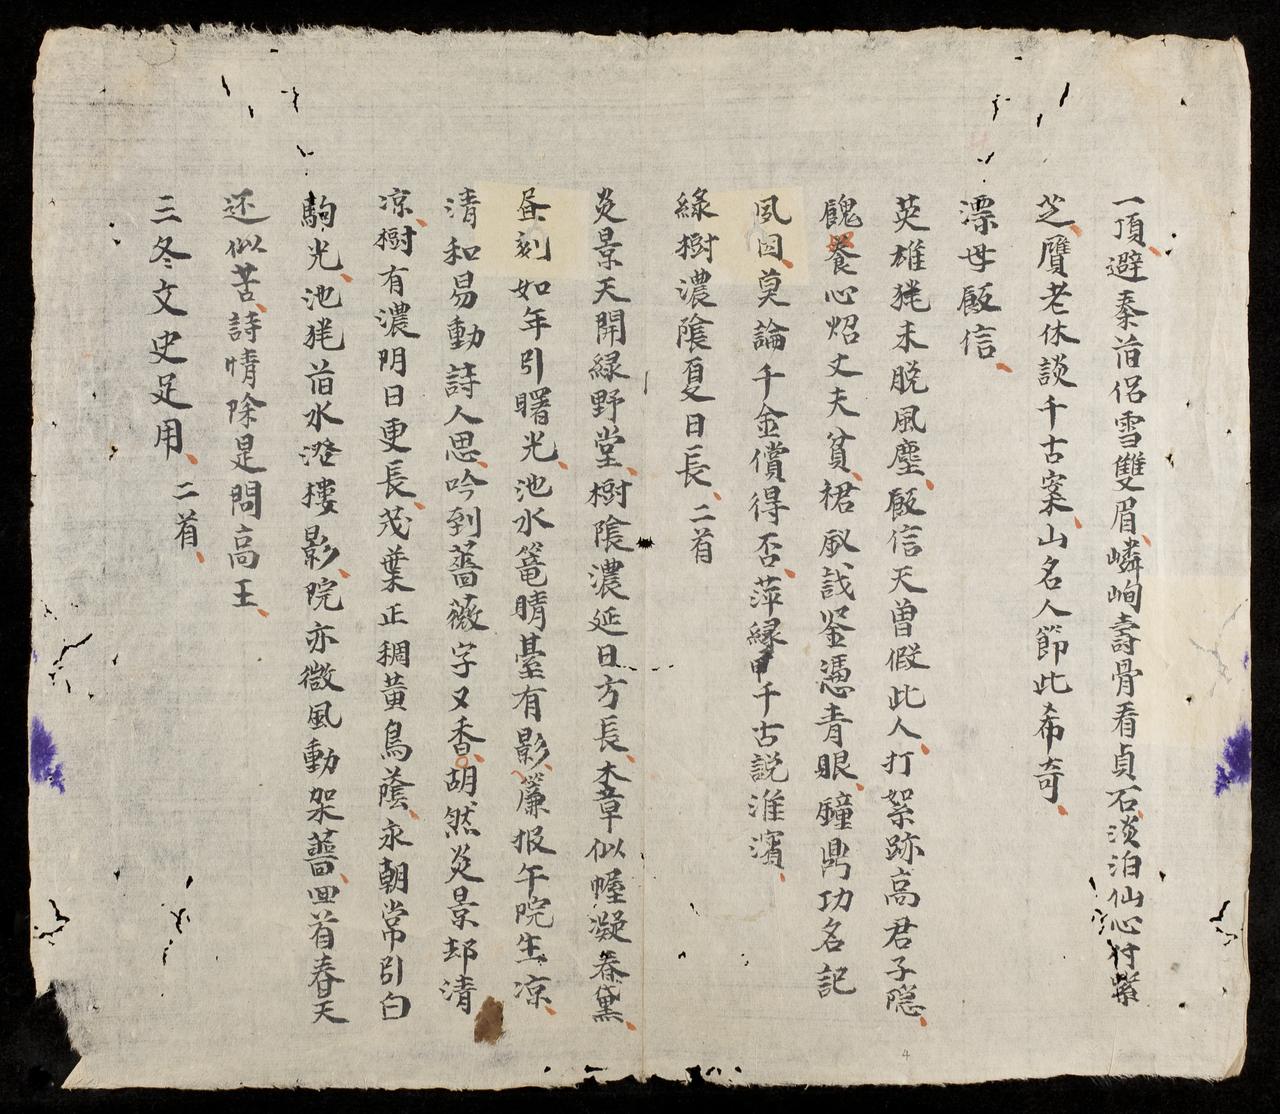 一頂避秦前侶雪雙眉嶙峋壽骨看貞石淡泊仙心付紫
芝贋老休談千古案山名人節此希奇
漂母飯信
英雄㹥未脱風塵飯信天曾假此人打絮跡高君子隠
餽飬心炤丈夫貧裙釵識鉴憑青眼鐘鼎功名記
夙因莫論千金償得否萍縁千古説淮濱
綠樹濃隂夏日長二首
炎景天開緑野堂樹隂濃延日方長木章似幄凝春黛
昼刻如年引曙光池水篭晴臺有影簾报午院生凉
清和易動詩人思吟到薔薇字又香胡然炎景却清
凉樹有濃阴日更長茂葉正稠黃鳥蔭永朝常引白
駒光池㹥前水澄搂影院亦微風動架薔囬首春天
还似苦詩情除是問高王
三冬文史足用二首